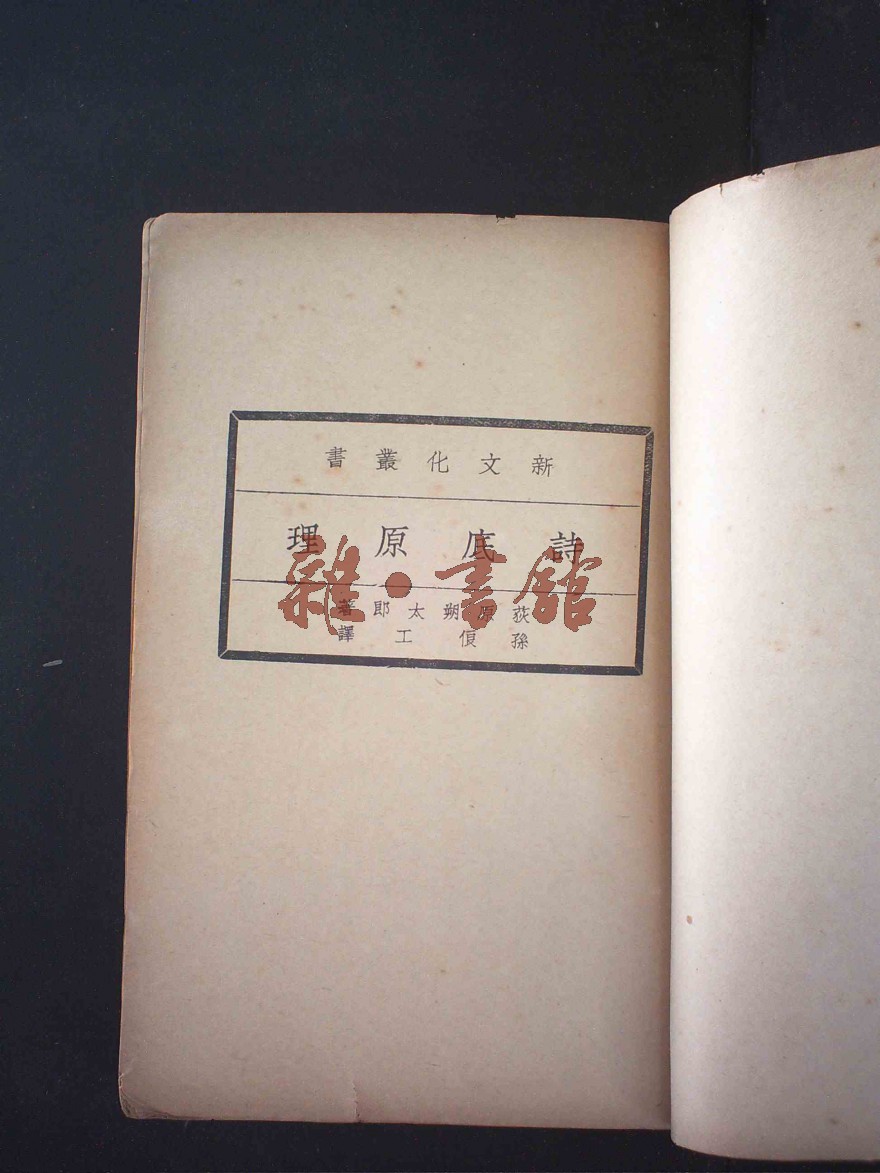 新文化叢書
詩底原理
荻原朔太郎著
孫俍工譯
雜·書館